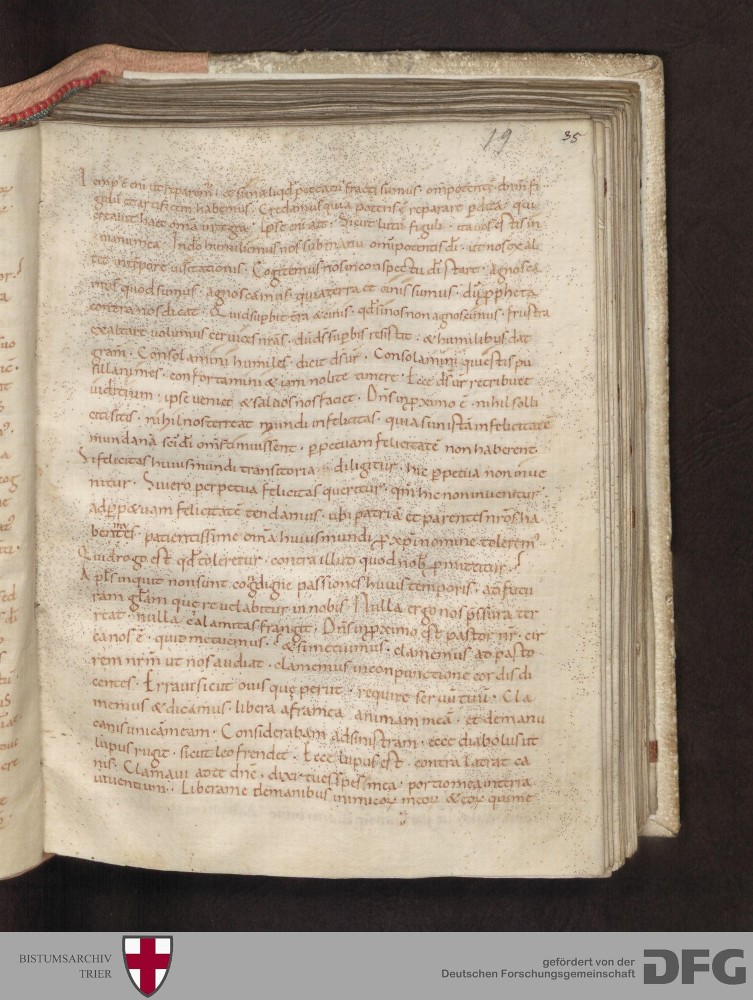 19 35
Temp' ē eni ut reparem; et si in aliqd peccati fracti sumus. omipotentē dnm fi
gulū et artificem habemus. Credamus quia potens ē reparare pdita. qui
creauit haec omia integra. Ipse eni ait. Sicut lutū figuli. ita uos estis in
manu mea. Indo humiliemus nos sub manu omipotentis di. ut nos exal
tet in tempore uisitationis. Cogitemus nos in conspectu di stare. agnosca
mus quod sumus. agnoscamus. quia terra et cinis sumus. ppheta
contra nos dicat. Quid supbit terra & cinis. qd si nos non agnoscimus. frustra
exaltare uolumus ceruices nras. ds supbis resistit. & humilibus dat
gram. Consolamini humiles. dicit ds ur. Consolamini qui estis pu
sillanimes. confortamini & iam nolite timere. Ecce ds ur retribuet
iuditium. ipse ueniet & saluos nos faciet. Dns in proximo ē. nihil solli
citi sitis. nihil nos terreat mundi infelicitas. quia si nistā infelicitatē
mundanā sci di oms timuissent. ppetuam felicitatē non haberent.
Si felicitas huius mundi transitoria diligitur. hic ppetua non inue
nitur. Si uero perpetua felicitas queritur. qm hic non inuenitur
ad ppetuam felicitatē tendamus. ubi patriā et parentes nros ha
bemus. patientissime omā huius mundi p xpi nomine tolerem'
Quid rogo est qd toleretur. contra illud quod nob pmittitur?
Apls inquit non sunt condigne passiones huius temporis. ad futu
ram glam que reuelabitur in nobis. Nulla ergo nos pssura ter
reat. nulla calamitas frangit. Dns in proximo est pastor nr. cir
ca nos ē. quid metuemus? & si metuimus. clamemus ad pasto
rem nrm ut nos audiat. clamemus in conpunctione cordis di
centes. Erraui sicut ouis que periit. require seruū tuū. Cla
memus & dicamus. libera a framea animam meā. et de manu
canis unicam meam. Considerabam ad sinistram. ecce diabolus ut
lupus rugit. sicut leo frendet. Ecce lupus est. contra latrat ca
nis. Clamaui ad te dne. dixi tu es spes mea. portio mea in terra
uiuentium. Libera me de manibus inimicorum meorum & eorum qui me